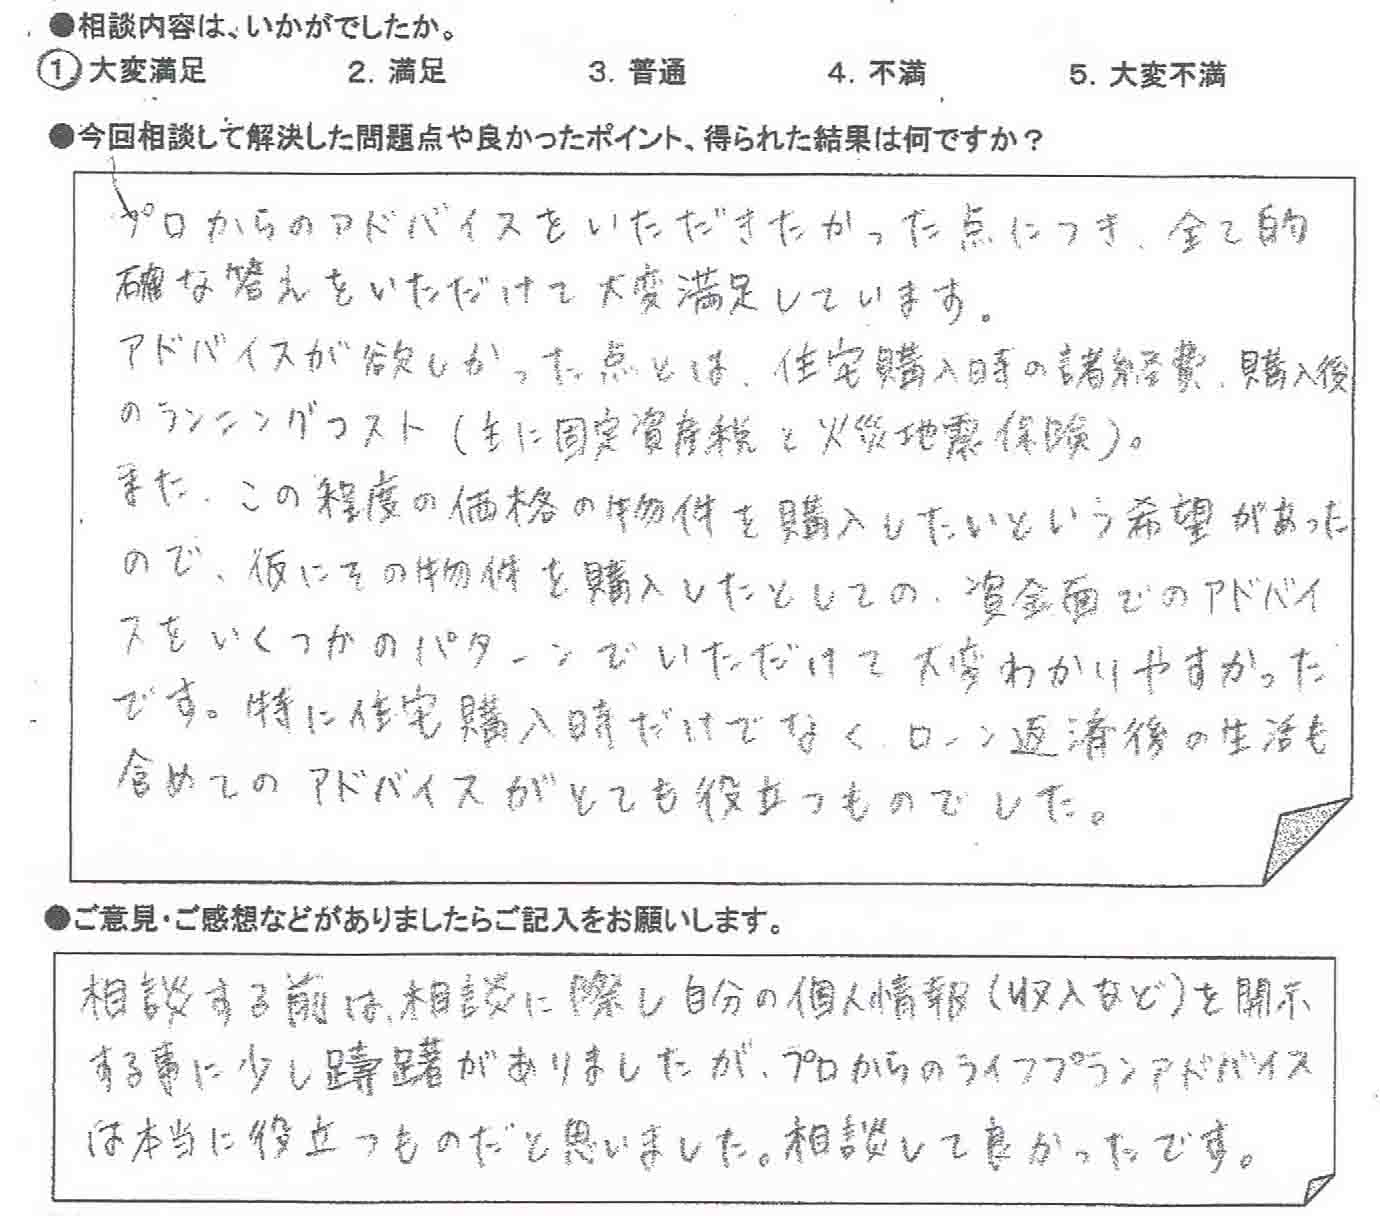 ●相談内容は、いかがでしたか。
①大変満足 2. 満足 3. 普通 4. 不満 5. 大変不満
●今回相談して解決した問題点や良かったポイント、得られた結果は何ですか？
プロからのアドバイスをいただきたかった点につき、全て的
確な答えをいただけて大変満足しています。
アドバイスが欲しかった点とは、住宅購入時の諸経費、購入後
のランニングコスト（主に固定資産税と火災地震保険）。
また、この程度の価格の物件を購入したいという希望があった
ので、仮にその物件を購入したとしての、資金面でのアドバイ
スをいくつかのパターンでいただけて大変わかりやすかった
です。特に住宅購入時だけでなく、ローン返済後の生活も
含めてのアドバイスがとても役立つものでした。
●ご意見・ご感想などがありましたらご記入をお願いします。
相談する前は、相談に際し自分の個人情報（収入など）を開示
する事に少し躊躇がありましたが、プロからのライフプランアドバイス
は本当に役立つものだと思いました。相談して良かったです。